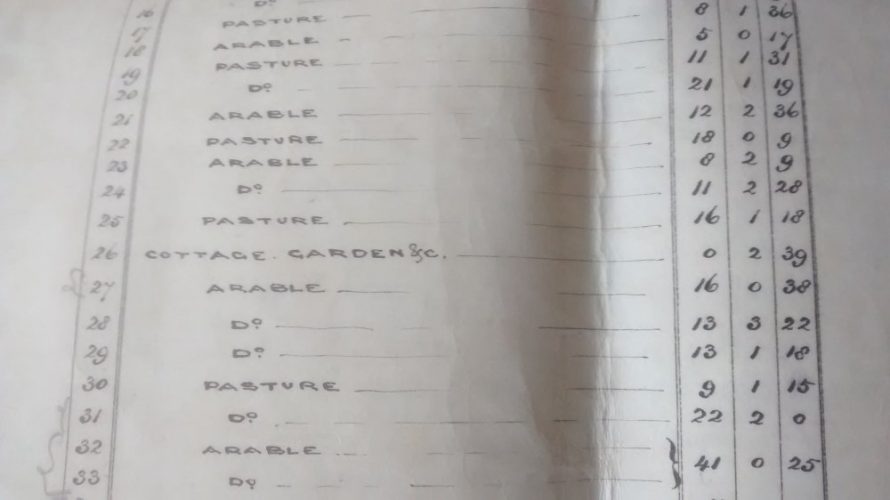 16 Do 8 1 36
17 PASTURE 5 0 17
18 ARABLE 11 1 31
19 PASTURE 21 1 19
20 Do 12 2 36
21 ARABLE 18 0 9
22 PASTURE 8 2 9
23 ARABLE 11 2 28
24 Do 16 1 18
25 PASTURE
26 COTTAGE. GARDEN &C. 0 2 39
27 ARABLE 16 0 38
28 Do 13 3 22
29 Do 13 1 18
30 PASTURE 9 1 15
31 Do 22 2 0
32 ARABLE
33 Do 41 0 25